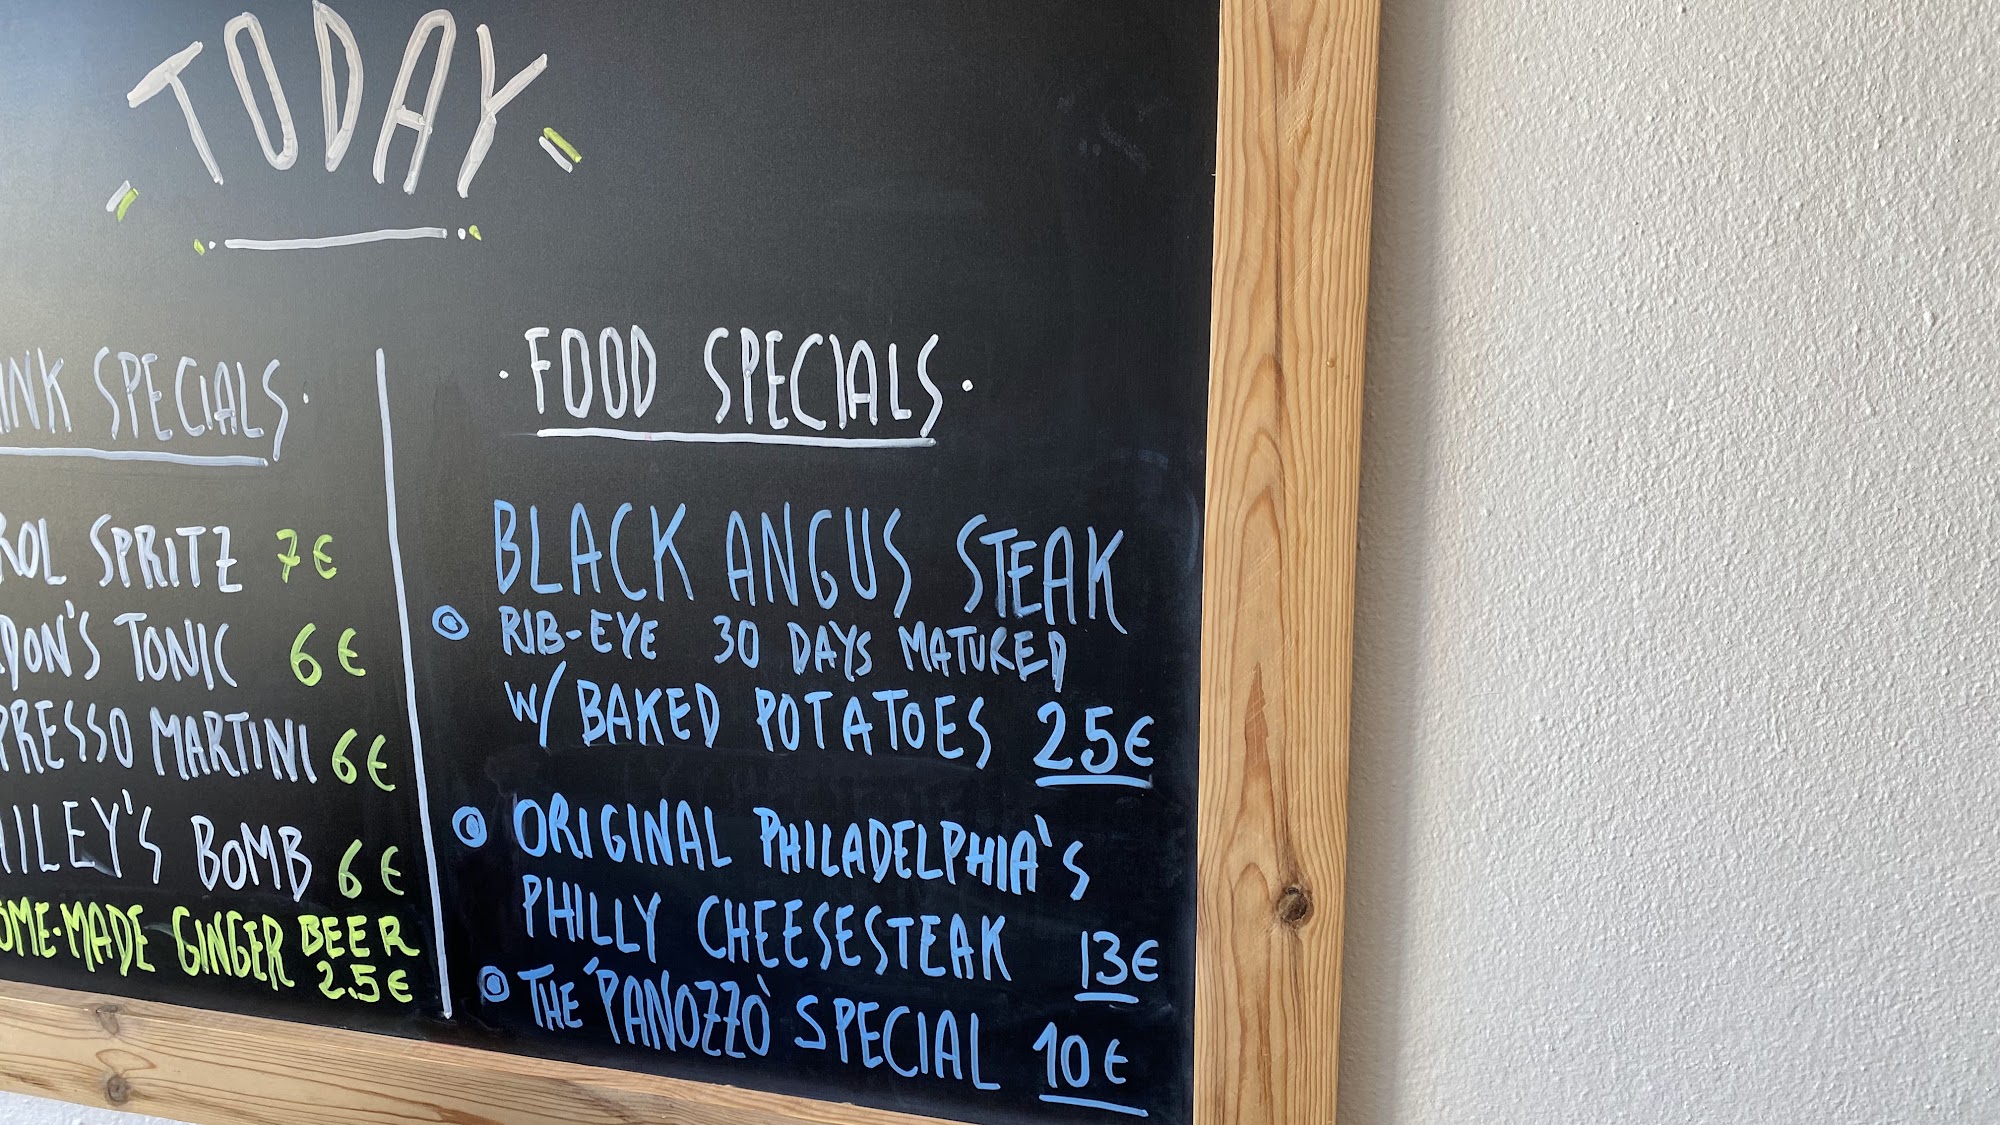 TODAY
INK SPECIALS·
ROL SPRITZ 7€
DON'S TONIC 6€
PRESSO MARTINI 6€
AILEY'S BOMB 6€
OME-MADE GINGER BEER
2.5€
· FOOD SPECIALS ·
BLACK ANGUS STEAK
RIB-EYE 30 DAYS MATURED
W/ BAKED POTATOES 25€
ORIGINAL PHILADELPHIA'S
PHILLY CHEESESTEAK 13€
THE 'PANOZZO' SPECIAL 10€